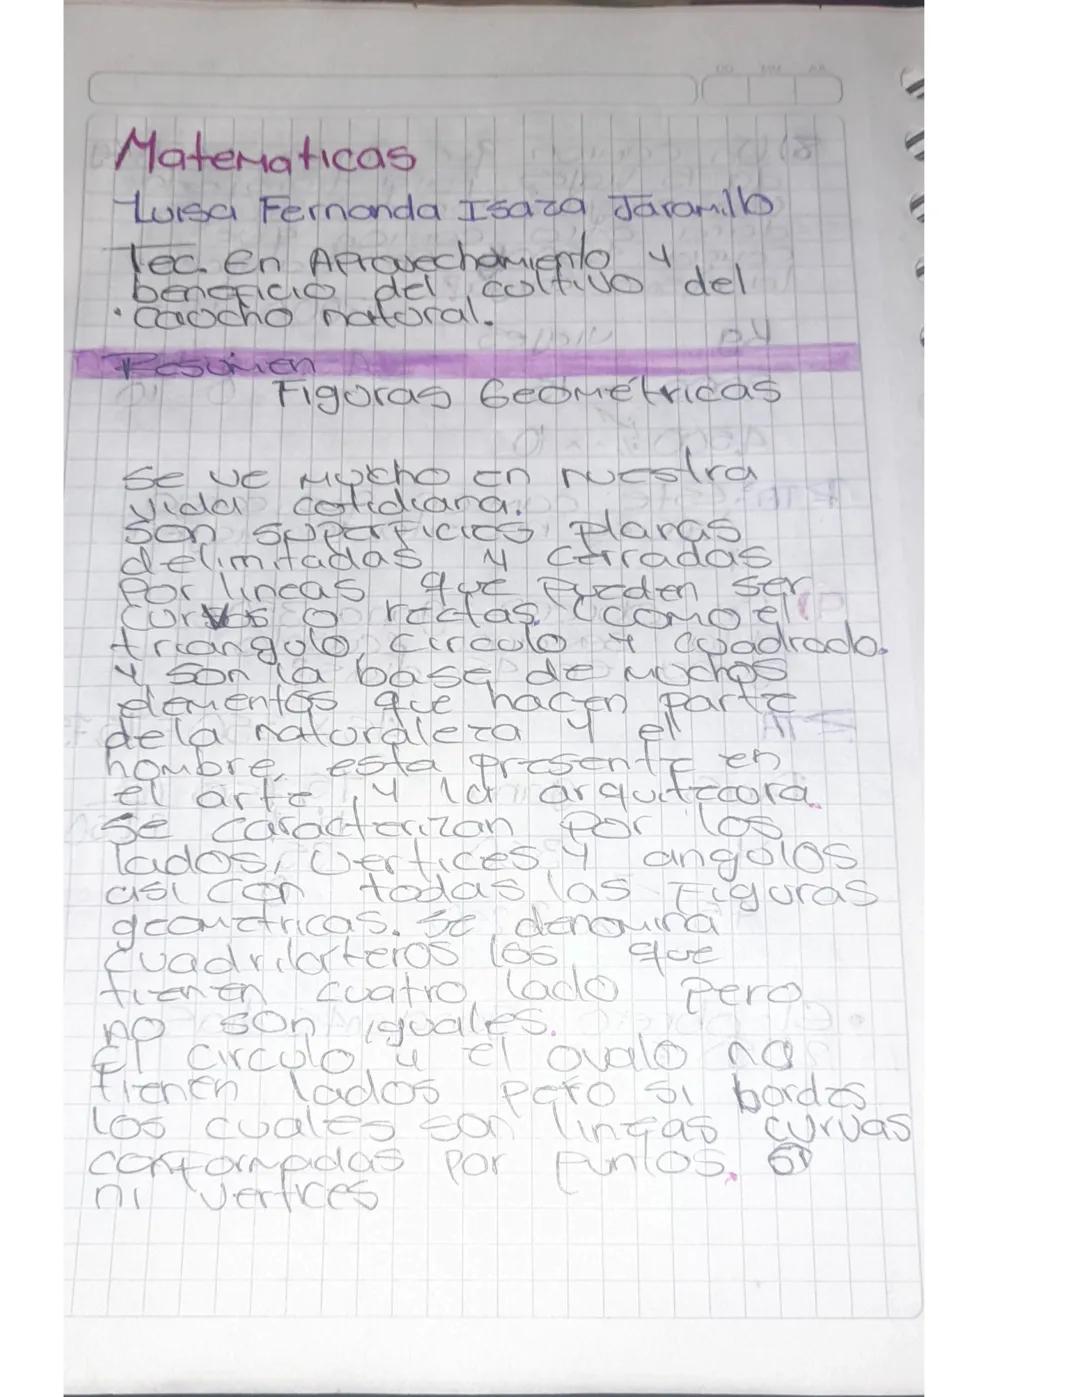 Matematicas
Luisa Fernanda Isaza Jaramillo
Tec. En Aprovechamiento y
beneficio del coltivo del
caocho natoral.
Resumen
Figoras Geométricas
se ve mucho en nuestra
vida cotidiana.
Son superficies planas
delimitadas y cerradas
Por lineas que pueden ser
curvas o rectas. Como el
triangolo, circolo y cuadrado.
y son la base de muchos
elementos que hacen parte
de la natoraleza y el
hombre, esta presente en
el arte, y la
se caracterizan por los
lados, vertices y angolos
asi con todas las Figuras
geometricas. se denomina
cuadrilorteros los que
tienen cuatro lado pero
no son iguales.
El circulo y el ovalo no
tienen lados pero si bordes
los cuales son lineas curvas
conformadas por puntos.
ni vertices